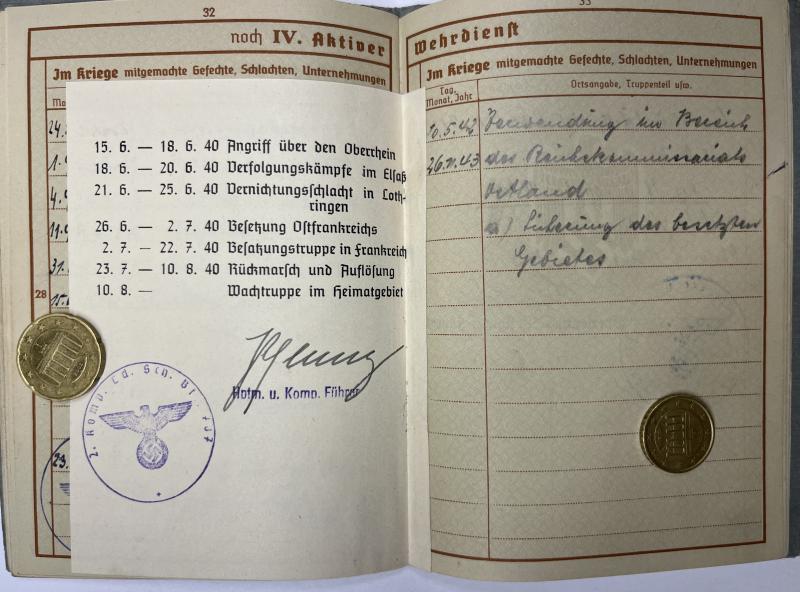 32
noch IV. Aktiver
Im Kriege mitgemachte Gefechte, Schlachten, Unternehmungen
24.
1.9
4.9
11.9
31.
28
15.
23.
15. 6. — 18. 6. 40 Angriff über den Oberrhein
18. 6. — 20. 6. 40 Verfolgungskämpfe im Elsaß
21. 6. — 25. 6. 40 Vernichtungsschlacht in Loth-
ringen
26. 6. — 2. 7. 40 Besetzung Ostfrankreichs
2. 7. — 22. 7. 40 Besatzungstruppe in Frankreich
23. 7. — 10. 8. 40 Rückmarsch und Auflösung
10. 8. — Wachtruppe im Heimatgebiet
Hptm. u. Komp. Führer
2. Komp. Ld. Sch.
33
Wehrdienst
Im Kriege mitgemachte Gefechte, Schlachten, Unternehmungen
Tag, Monat, Jahr
Ortsangabe, Truppenteil usw.
Verwendung im Bereich
des Reichskommissariats
Ostland
a) Sicherung des besetzten
Gebietes